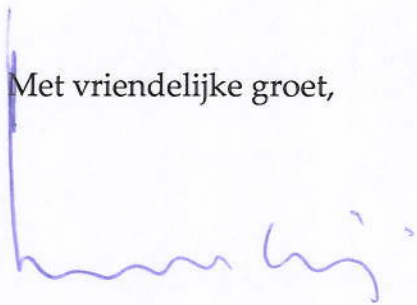 Met vriendelijke groet,